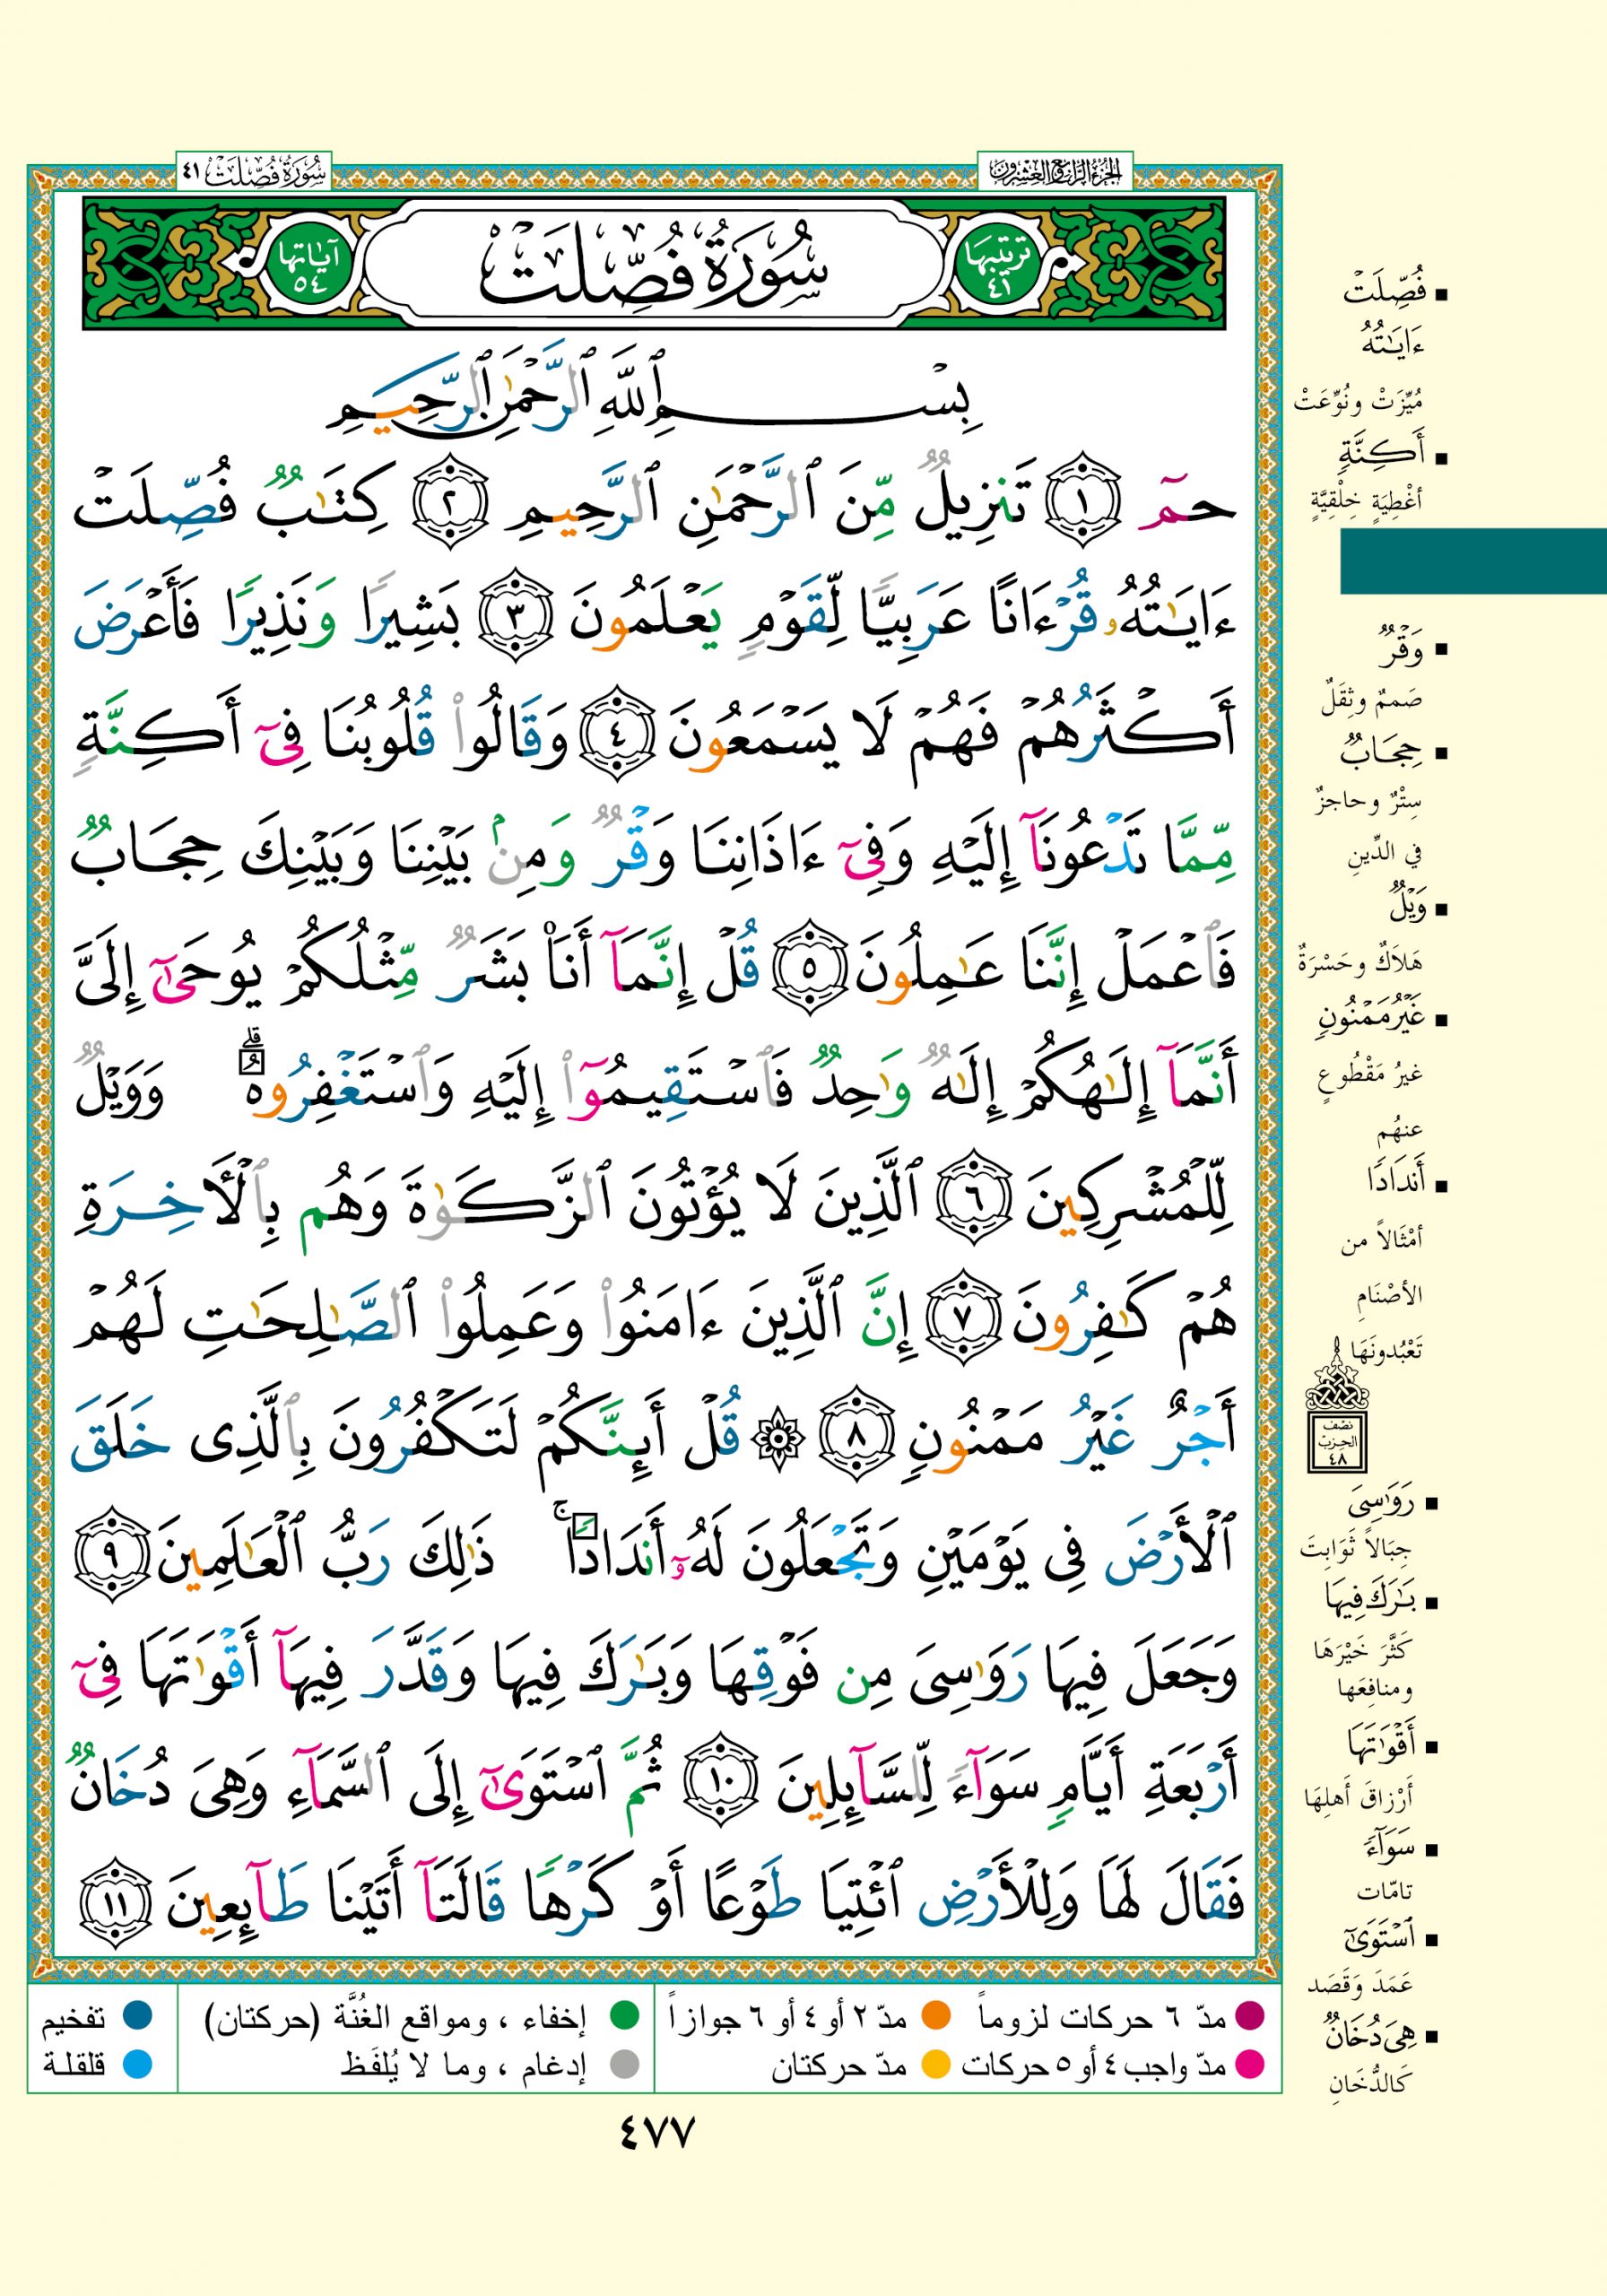 الجزء الرابع والعشرون
سُورَةُ فُصِّلَتْ ٤١
ترتيبها ٤١
سُورَةُ فُصِّلَتْ
آياتها ٥٤
بِسْمِ ٱللَّهِ ٱلرَّحْمَٰنِ ٱلرَّحِيمِ
حمٓ ١ تَنزِيلٌ مِّنَ ٱلرَّحْمَٰنِ ٱلرَّحِيمِ ٢ كِتَٰبٌ فُصِّلَتْ
ءَايَٰتُهُۥ قُرْءَانًا عَرَبِيًّا لِّقَوْمٍ يَعْلَمُونَ ٣ بَشِيرًا وَنَذِيرًا فَأَعْرَضَ
أَكْثَرُهُمْ فَهُمْ لَا يَسْمَعُونَ ٤ وَقَالُوا۟ قُلُوبُنَا فِىٓ أَكِنَّةٍ
مِّمَّا تَدْعُونَآ إِلَيْهِ وَفِىٓ ءَاذَانِنَا وَقْرٌ وَمِنۢ بَيْنِنَا وَبَيْنِكَ حِجَابٌ
فَٱعْمَلْ إِنَّنَا عَٰمِلُونَ ٥ قُلْ إِنَّمَآ أَنَا۠ بَشَرٌ مِّثْلُكُمْ يُوحَىٰٓ إِلَىَّ
أَنَّمَآ إِلَٰهُكُمْ إِلَٰهٌ وَٰحِدٌ فَٱسْتَقِيمُوٓا۟ إِلَيْهِ وَٱسْتَغْفِرُوهُ ۗ وَوَيْلٌ
لِّلْمُشْرِكِينَ ٦ ٱلَّذِينَ لَا يُؤْتُونَ ٱلزَّكَوٰةَ وَهُم بِٱلْأَخِرَةِ
هُمْ كَٰفِرُونَ ٧ إِنَّ ٱلَّذِينَ ءَامَنُوا۟ وَعَمِلُوا۟ ٱلصَّٰلِحَٰتِ لَهُمْ
أَجْرٌ غَيْرُ مَمْنُونٍ ٨ ۞ قُلْ أَئِنَّكُمْ لَتَكْفُرُونَ بِٱلَّذِى خَلَقَ
ٱلْأَرْضَ فِى يَوْمَيْنِ وَتَجْعَلُونَ لَهُۥٓ أَندَادًا ۚ ذَٰلِكَ رَبُّ ٱلْعَٰلَمِينَ ٩
وَجَعَلَ فِيهَا رَوَٰسِىَ مِن فَوْقِهَا وَبَٰرَكَ فِيهَا وَقَدَّرَ فِيهَآ أَقْوَٰتَهَا فِىٓ
أَرْبَعَةِ أَيَّامٍ سَوَآءً لِّلسَّآئِلِينَ ١٠ ثُمَّ ٱسْتَوَىٰٓ إِلَى ٱلسَّمَآءِ وَهِىَ دُخَانٌ
فَقَالَ لَهَا وَلِلْأَرْضِ ٱئْتِيَا طَوْعًا أَوْ كَرْهًا قَالَتَآ أَتَيْنَا طَآئِعِينَ ١١
■ فُصِّلَتْ
ءَايَٰتُهُۥ
مُيِّزَتْ ونُوِّعَتْ
■ أَكِنَّةٍ
أغْطِيَةٍ خِلْقِيَّةٍ
■ وَقْرٌ
صَممٌ وثِقَلٌ
■ حِجَابٌ
سِتْرٌ وحاجزٌ
في الدِّينِ
■ وَيْلٌ
هَلاَكٌ وحَسْرَةٌ
■ غَيْرُ مَمْنُونٍ
غيرُ مَقْطُوعٍ
عنهُم
■ أَندَادًا
أمْثَالاً من
الأصْنَامِ
تَعْبُدونَهَا
نصف
الحزب
٤٨
■ رَوَٰسِىَ
جِبَالاً ثَوَابِتَ
■ بَٰرَكَ فِيهَا
كَثَّرَ خَيْرَهَا
ومنافِعَها
■ أَقْوَٰتَهَا
أَرْزاقَ أَهلِهَا
■ سَوَآءً
تامّات
■ ٱسْتَوَىٰٓ
عَمَدَ وَقَصَد
■ هِىَ دُخَانٌ
كَالدُّخَانِ
مدّ ٦ حركات لزوماً
مدّ ٢ أو ٤ أو ٦ جوازاً
إخفاء ، ومواقع الغُنَّة (حركتان)
تفخيم
مدّ واجب ٤ أو ٥ حركات
مدّ حركتان
إدغام ، وما لا يُلفَظ
قلقلة
٤٧٧